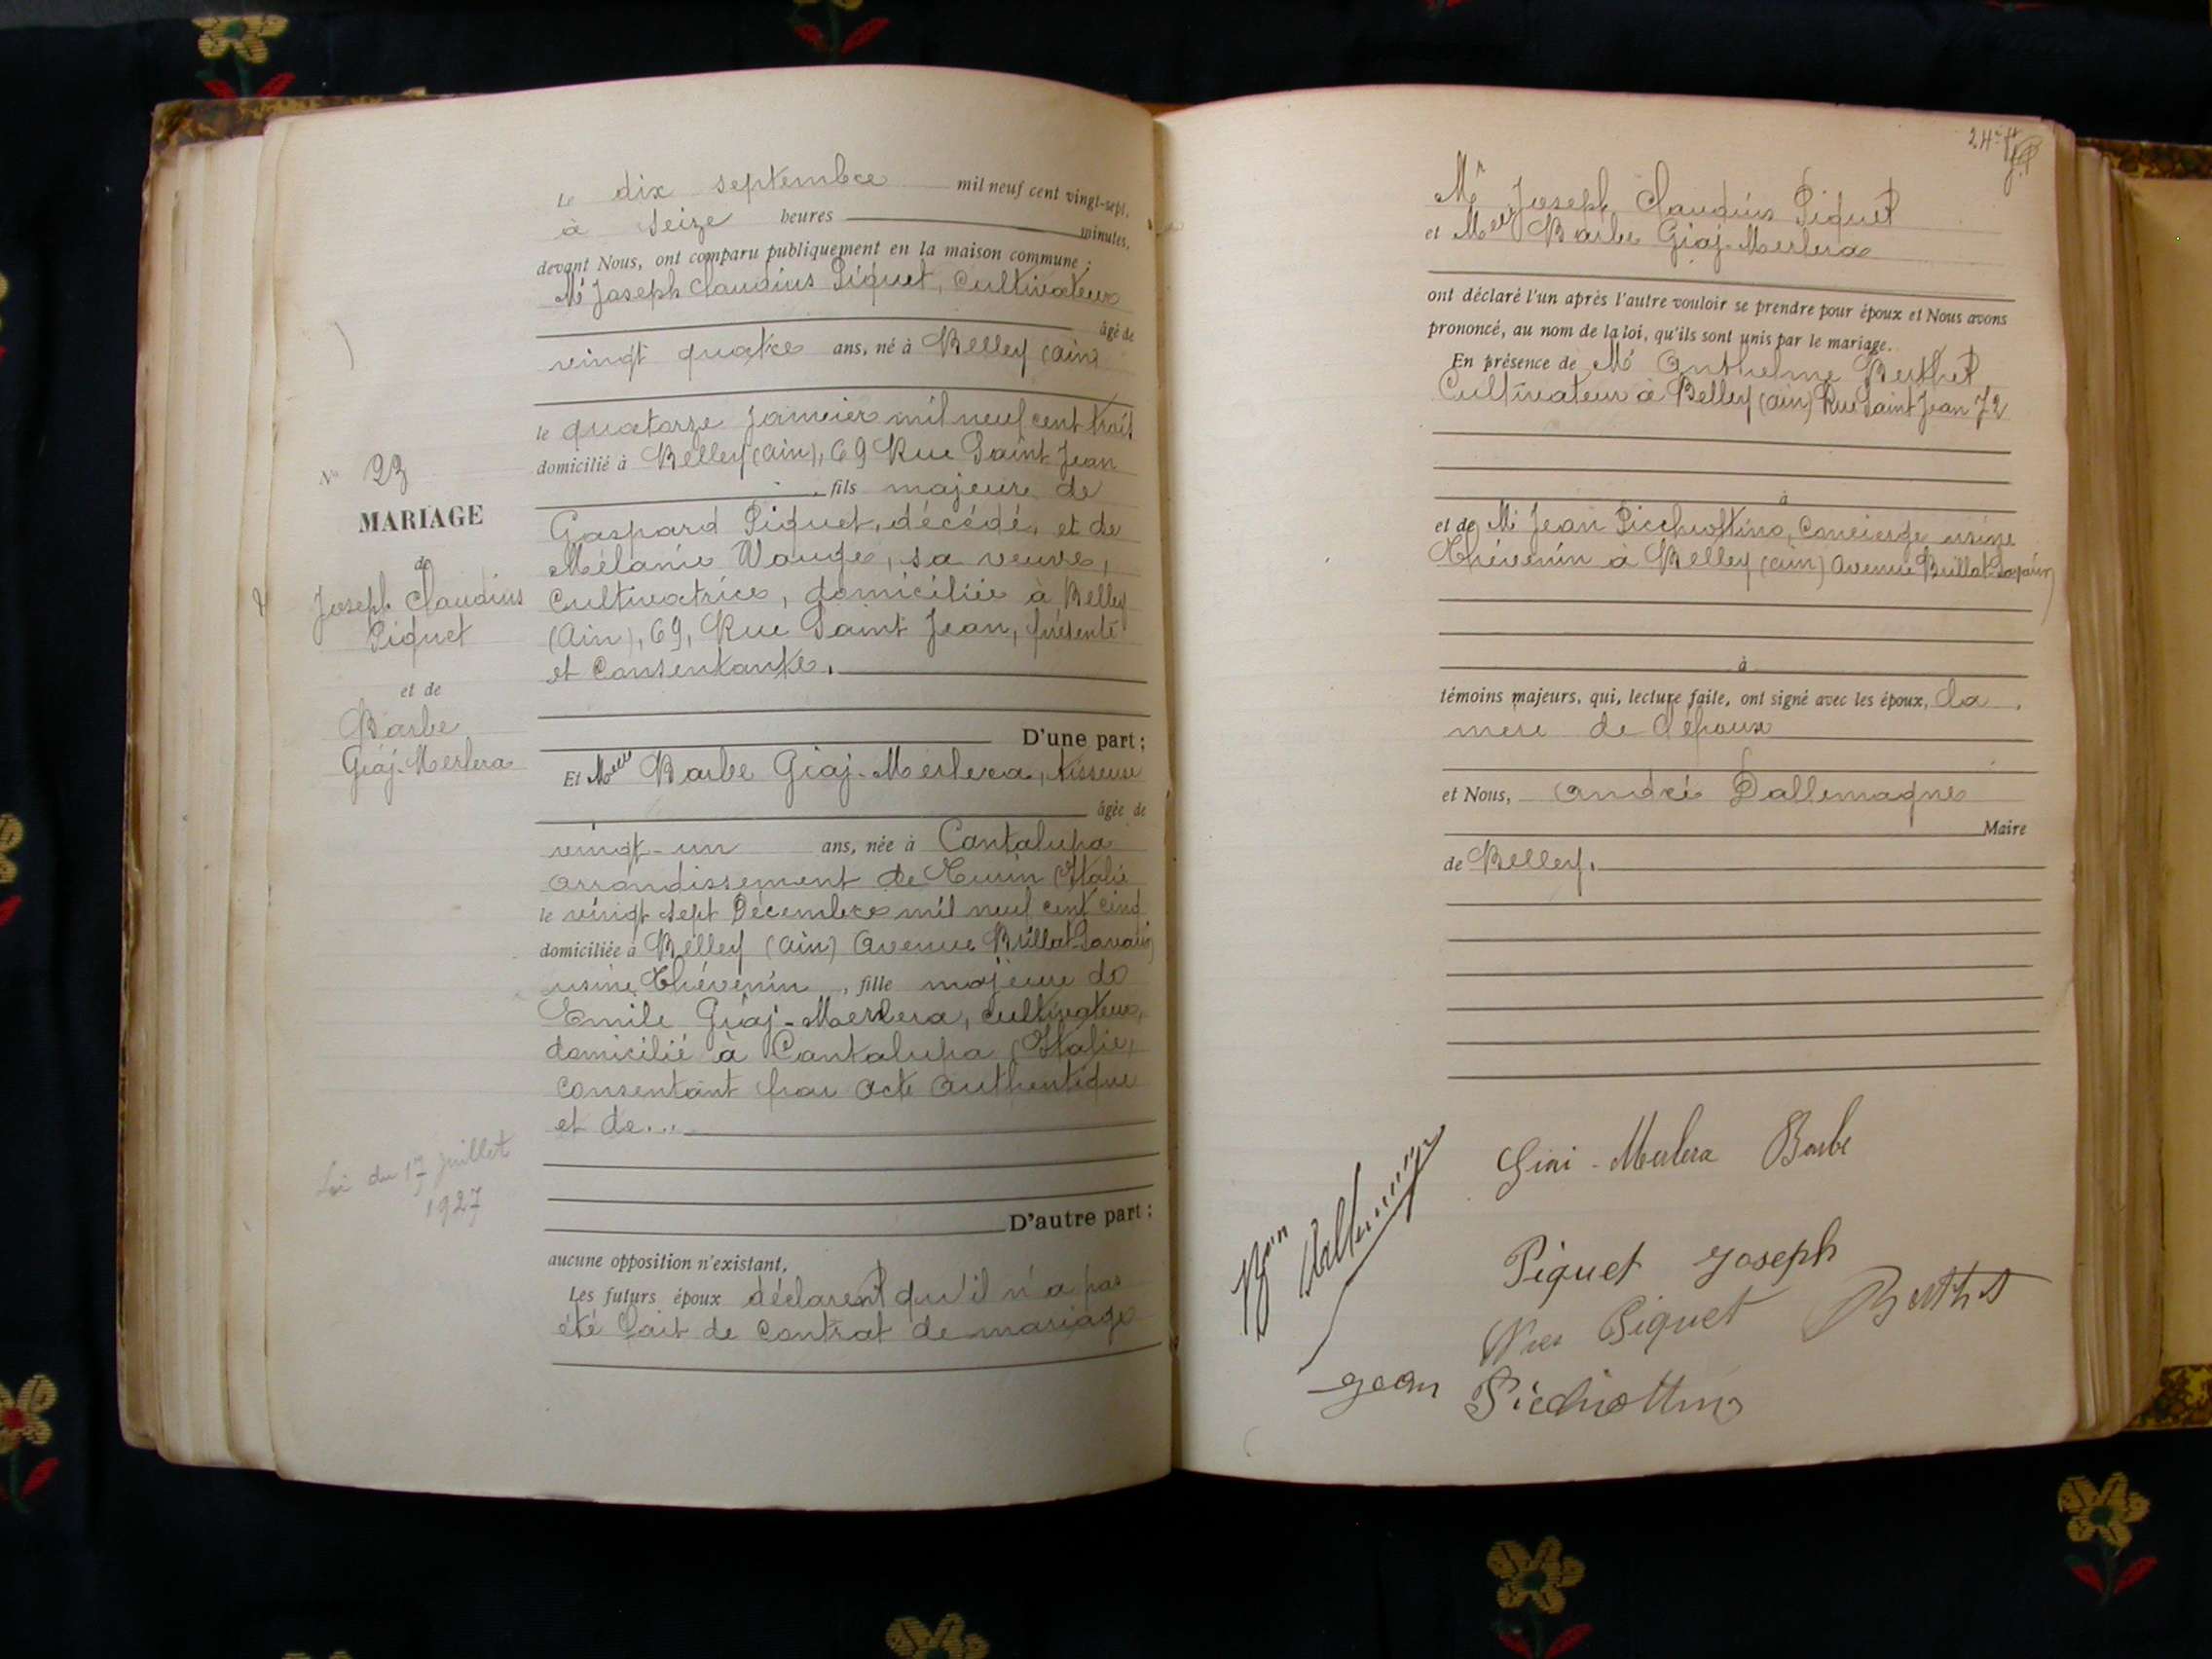 Le dix septembre mil neuf cent vingt-sept,
à seize heures minutes,
devant Nous, ont comparu publiquement en la maison commune :
Mr Joseph Claudius Piquet, Cultivateur
âgé de
vingt quatre ans, né à Belley (Ain)
le quatorze Janvier mil neuf cent trois
domicilié à Belley (Ain), 69 Rue Saint Jean
, fils majeure de
Gaspard Piquet, décédé, et de
Mélanie Vauge, sa veuve,
Cultivatrice, domiciliée à Belley
(Ain), 69, Rue Saint Jean, présente
et Consentante.
D'une part ;
Et Melle Barbe Giaj-Merlera, tisseuse
âgée de
vingt-un ans, née à Cantalupa
arrondissement de Turin (Italie
le vingt sept Décembre mil neuf cent cinq
domiciliée à Belley (Ain) Avenue Brillat Savarin
usine Thévenin, fille majeure de
Emile Giaj-Merlera, cultivateur,
domicilié à Cantalupa (Italie)
Consentant par acte authentique
et de...
D'autre part ;
aucune opposition n'existant,
Les futurs époux déclarent qu'il n'a pas
été fait de contrat de mariage
No 23
MARIAGE
de
Joseph Claudius
Piquet
et de
Barbe
Giaj-Merlera
Loi du 17 juillet
1927
24e ft
Mr Joseph Claudius Piquet
et Melle Barbe Giaj-Merlera
ont déclaré l'un après l'autre vouloir se prendre pour époux et Nous avons
prononcé, au nom de la loi, qu'ils sont unis par le mariage.
En présence de Mr Anthelme Berthet
Cultivateur à Belley (Ain) Rue Saint Jean 72
à
et de Mr Jean Picchiottino, Concierge usine
Thévenin à Belley (Ain) Avenue Brillat-Savarin
à
témoins majeurs, qui, lecture faite, ont signé avec les époux, la
mère de l'époux
et Nous, André Dallemagne
Maire
de Belley.
Giai-Merlera Barbe
Piquet Joseph
Vve Piquet Berthet
Jean Picchiottino